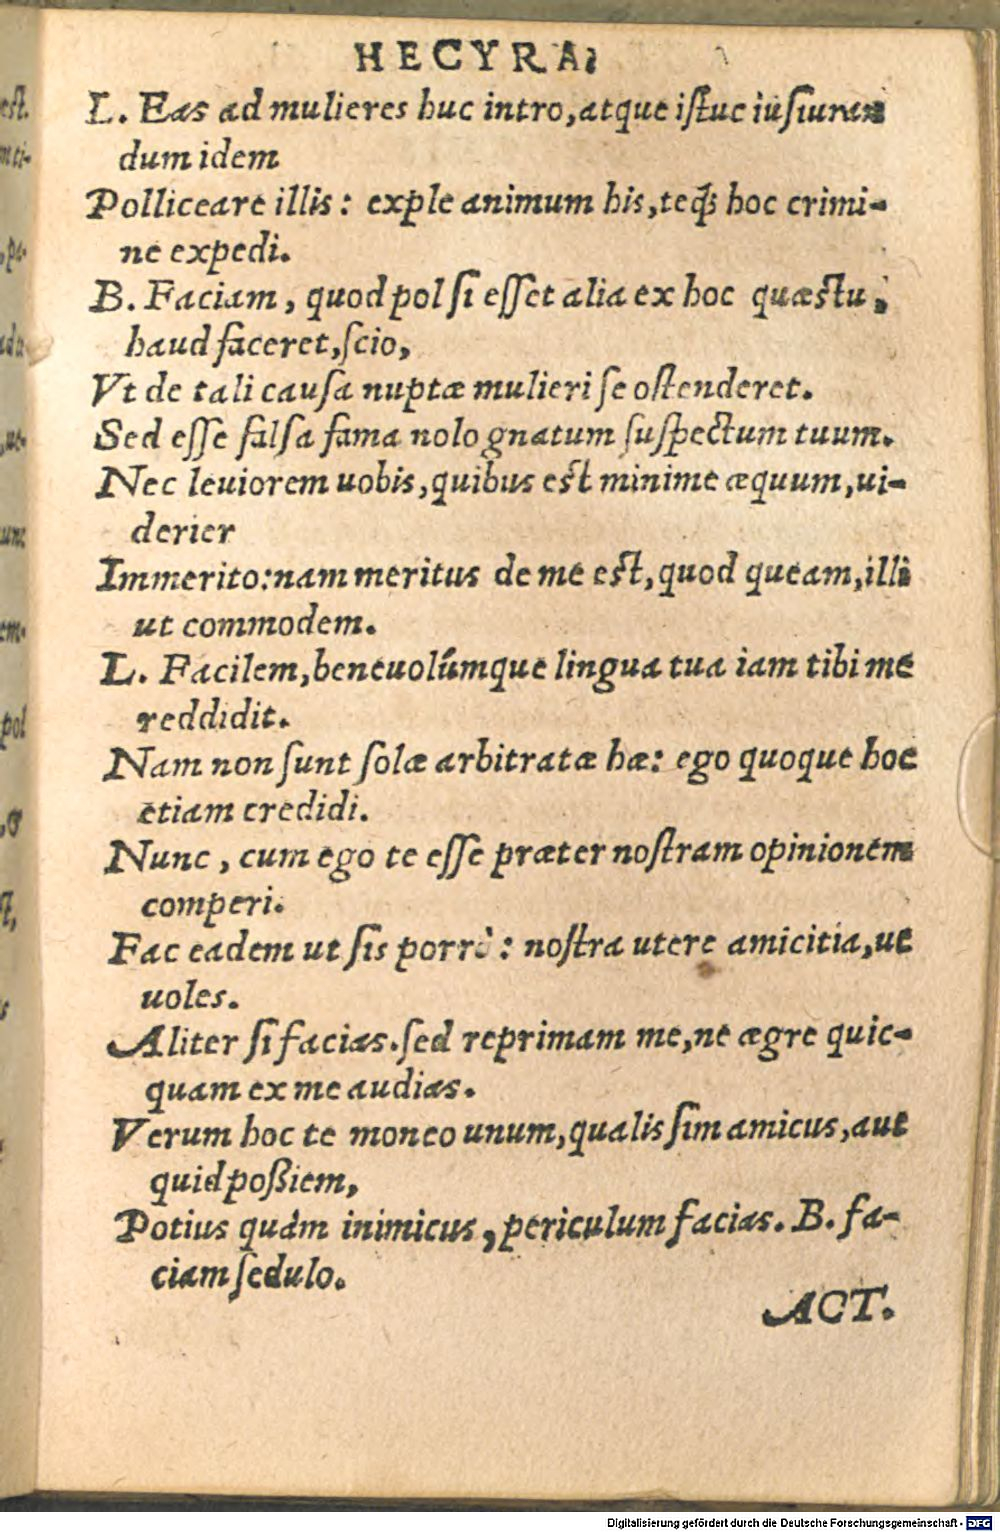 HECYRA.
L. Eas ad mulieres huc intro, atque iſtuc iuſiuran
dum idem
Polliceare illis: exple animum his, teq́; hoc crimi-
ne expedi.
B. Faciam, quod pol ſi eſſet alia ex hoc quæſtu,
haud faceret, ſcio,
Vt de tali cauſa nuptæ mulieri ſe oſtenderet.
Sed eſſe falſa fama nolo gnatum ſuſpectum tuum.
Nec leuiorem uobis, quibus eſt minime æquum, ui-
derier
Immerito: nam meritus de me eſt, quod queam, illi
ut commodem.
L. Facilem, beneuolúmque lingua tua iam tibi me
reddidit.
Nam non ſunt ſolæ arbitratæ hæ: ego quoque hoc
etiam credidi.
Nunc, cum ego te eſſe præter noſtram opinionem
comperi.
Fac eadem ut ſis porrò: noſtra utere amicitia, ut
uoles.
Aliter ſi facias. ſed reprimam me, ne ægre quic-
quam ex me audias.
Verum hoc te moneo unum, qualis ſim amicus, aut
quid poßiem,
Potius quàm inimicus, periculum facias. B. fa-
ciam ſedulo.
ACT.
est.
pol
Digitalisierung gefördert durch die Deutsche Forschungsgemeinschaft - DFG